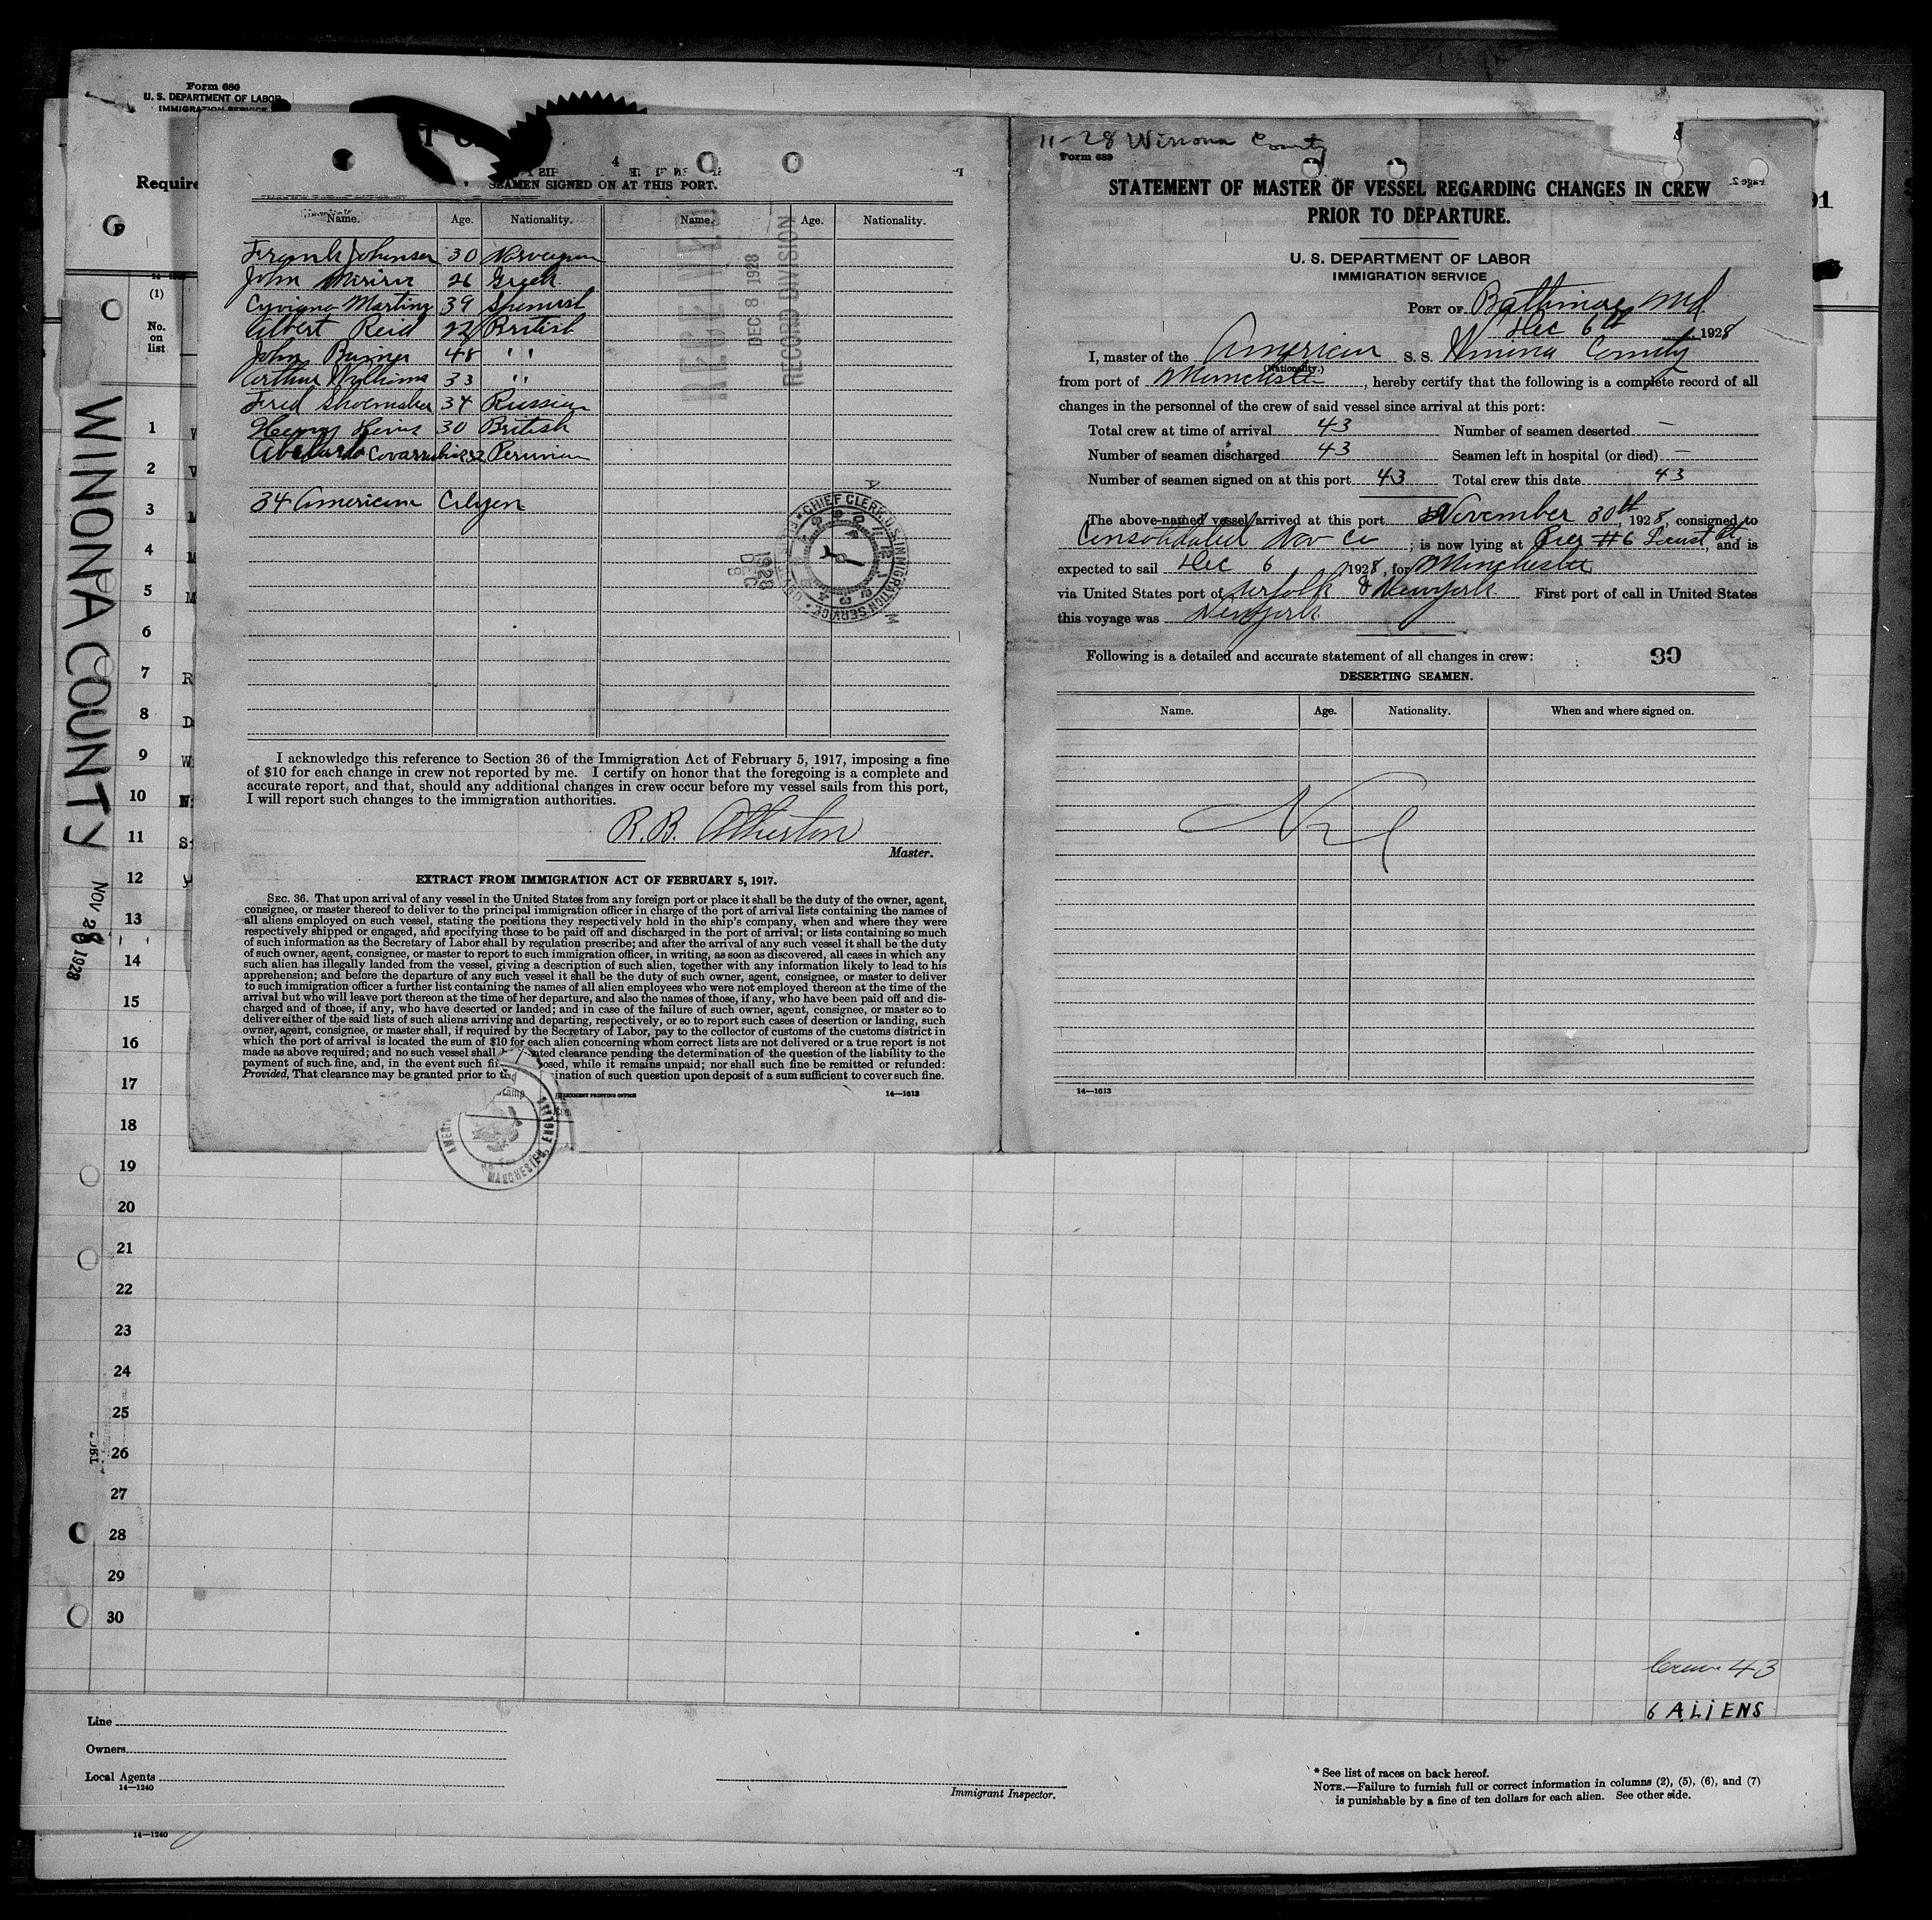 Form 680
U. S. DEPARTMENT OF LABOR
IMMIGRATION SERVICE
Require
(1)
No.
on
list
WINONA COUNTY
NOV 28 1928
SEAMEN SIGNED ON AT THIS PORT.
Name. Age. Nationality. Name. Age. Nationality.
Frank Johansen 30 Norwegian
John 26 Greek
Martinz 39 Spanish
Albert Reid 22 British
John 48 " "
Arthur Williams 33 " "
Fred Shoemaker 34 Russian
Henry 30 British
Abelardo Covarrubias 32 Peruvian
34 American Citizen
RECEIVED
DEC 8 1928
RECORD DIVISION
CHIEF CLERK U.S. IMMIGRATION SERVICE
1928
DEC
8
I acknowledge this reference to Section 36 of the Immigration Act of February 5, 1917, imposing a fine
of $10 for each change in crew not reported by me. I certify on honor that the foregoing is a complete and
accurate report, and that, should any additional changes in crew occur before my vessel sails from this port,
I will report such changes to the immigration authorities.
R. B. Atherton
Master.
EXTRACT FROM IMMIGRATION ACT OF FEBRUARY 5, 1917.
SEC. 36. That upon arrival of any vessel in the United States from any foreign port or place it shall be the duty of the owner, agent,
consignee, or master thereof to deliver to the principal immigration officer in charge of the port of arrival lists containing the names of
all aliens employed on such vessel, stating the positions they respectively hold in the ship's company, when and where they were
respectively shipped or engaged, and specifying those to be paid off and discharged in the port of arrival; or lists containing so much
of such information as the Secretary of Labor shall by regulation prescribe; and after the arrival of any such vessel it shall be the duty
of such owner, agent, consignee, or master to report to such immigration officer, in writing, as soon as discovered, all cases in which any
such alien has illegally landed from the vessel, giving a description of such alien, together with any information likely to lead to his
apprehension; and before the departure of any such vessel it shall be the duty of such owner, agent, consignee, or master to deliver
to such immigration officer a further list containing the names of all alien employees who were not employed thereon at the time of the
arrival but who will leave port thereon at the time of her departure, and also the names of those, if any, who have been paid off and dis-
charged and of those, if any, who have deserted or landed; and in case of the failure of such owner, agent, consignee, or master so to
deliver either of the said lists of such aliens arriving and departing, respectively, or so to report such cases of desertion or landing, such
owner, agent, consignee, or master shall, if required by the Secretary of Labor, pay to the collector of customs of the customs district in
which the port of arrival is located the sum of $10 for each alien concerning whom correct lists are not delivered or a true report is not
made as above required; and no such vessel shall nted clearance pending the determination of the question of the liability to the
payment of such fine, and, in the event such fi posed, while it remains unpaid; nor shall such fine be remitted or refunded:
Provided, That clearance may be granted prior to t ination of such question upon deposit of a sum sufficient to cover such fine.
PRINTING OFFICE 14—1613
MANCHESTER,
11-28 Winona County
Form 689
STATEMENT OF MASTER OF VESSEL REGARDING CHANGES IN CREW
PRIOR TO DEPARTURE.
U. S. DEPARTMENT OF LABOR
IMMIGRATION SERVICE
PORT OF Baltimore Md
Dec 6th, 1928
I, master of the American S. S. Winona County
(Nationality.)
from port of Manchester, hereby certify that the following is a complete record of all
changes in the personnel of the crew of said vessel since arrival at this port:
Total crew at time of arrival 43 Number of seamen deserted —
Number of seamen discharged 43 Seamen left in hospital (or died) —
Number of seamen signed on at this port 43 Total crew this date 43
The above-named vessel arrived at this port November 30th, 1928, consigned to
Consolidated Nav Co; is now lying at Pier #6 Locust Pt, and is
expected to sail Dec 6, 1928, for Manchester
via United States port of Norfolk & New York First port of call in United States
this voyage was New York
Following is a detailed and accurate statement of all changes in crew: 30
DESERTING SEAMEN.
Name. Age. Nationality. When and where signed on.
Nil
14—1613
91
1
2
3
4
5
6
7
8
9
10
11
12
13
14
15
16
17
18
19
20
21
22
23
24
25
26
27
28
29
30
Crew 43
6 ALIENS
Line
Owners
Local Agents
14—1240
Immigrant Inspector.
* See list of races on back hereof.
NOTE.—Failure to furnish full or correct information in columns (2), (5), (6), and (7)
is punishable by a fine of ten dollars for each alien. See other side.
14—1240